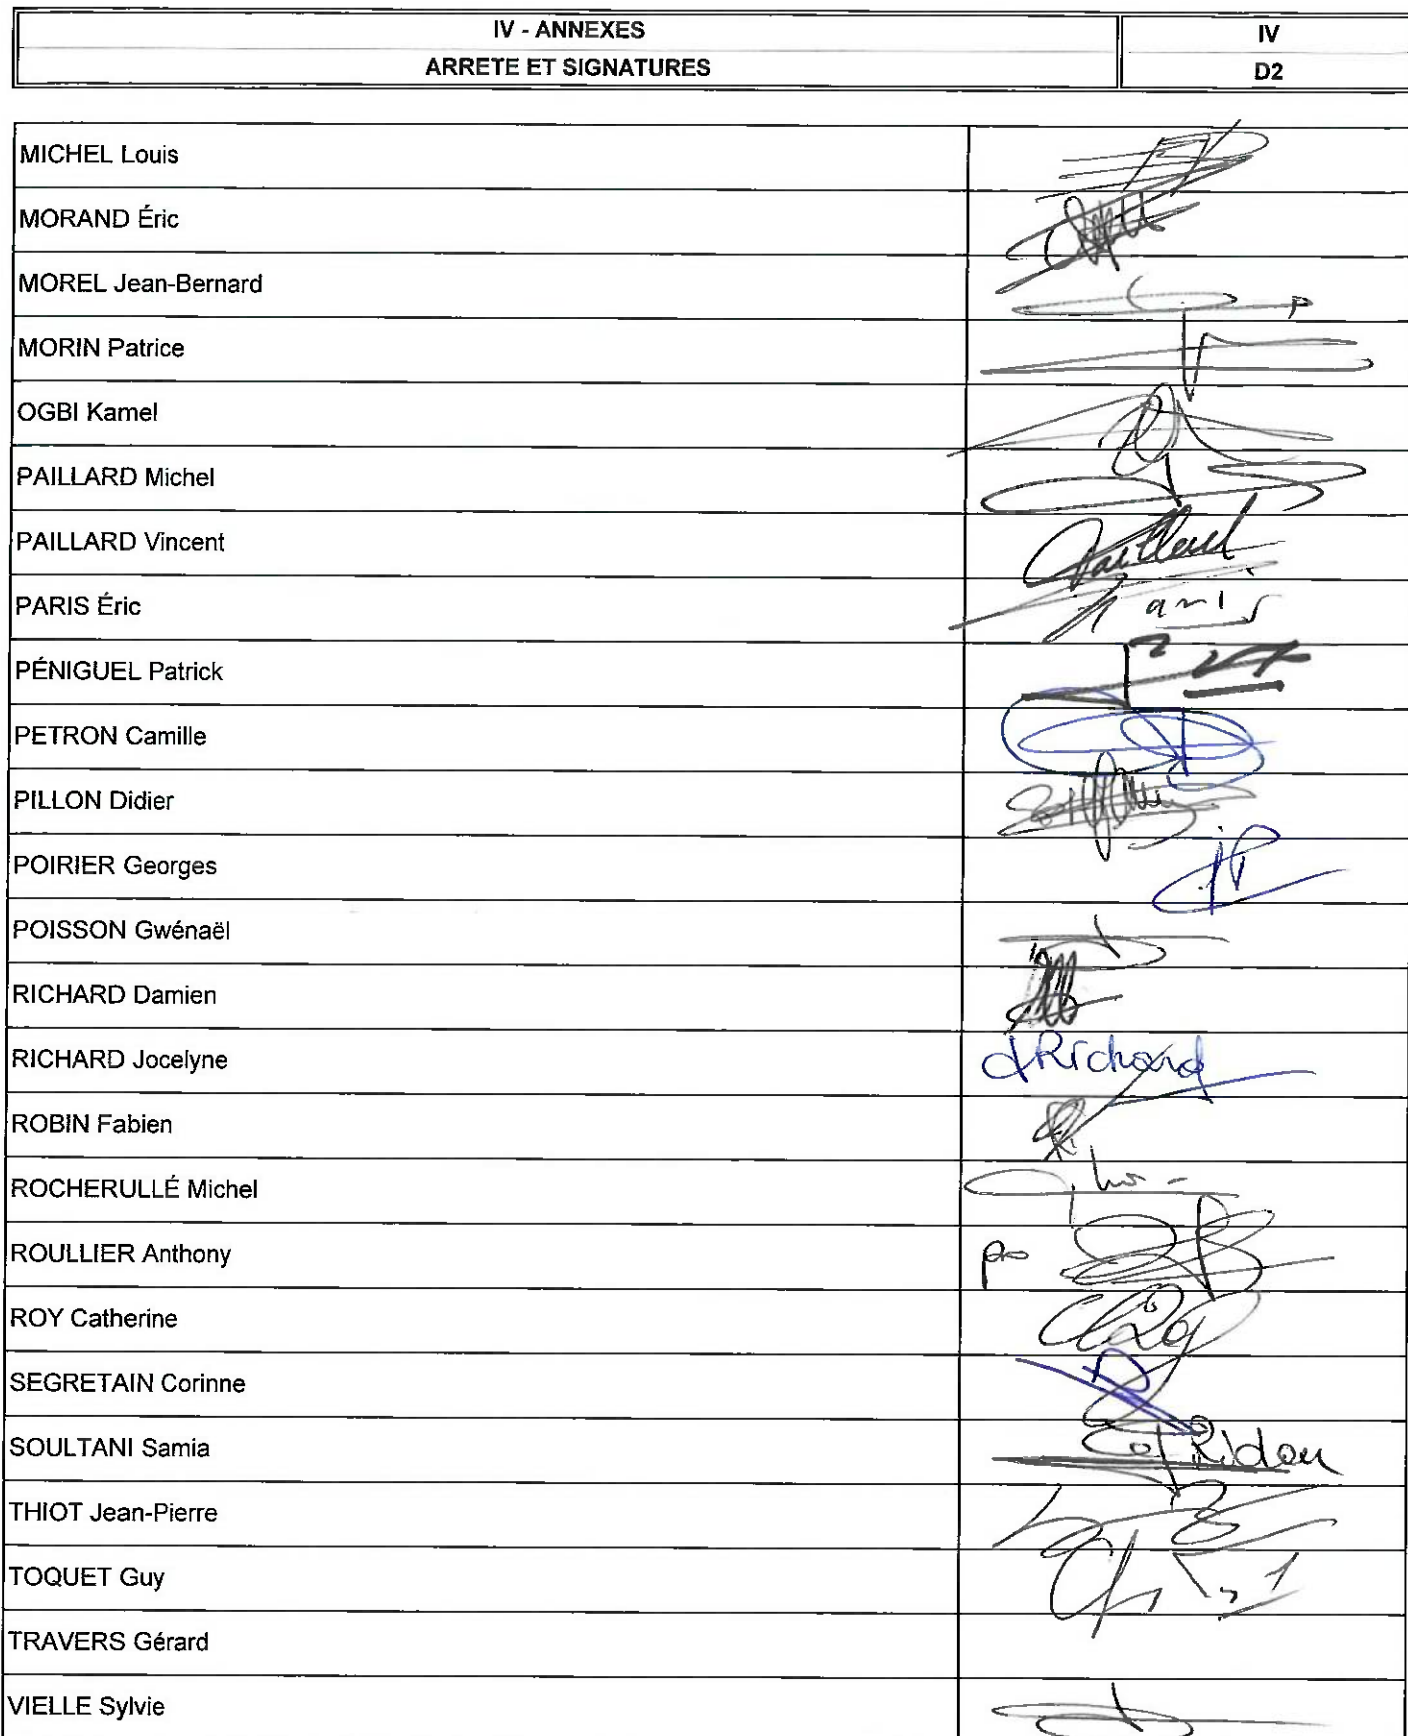 IV - ANNEXES IV
ARRETE ET SIGNATURES D2
MICHEL Louis
MORAND Éric
MOREL Jean-Bernard
MORIN Patrice
OGBI Kamel
PAILLARD Michel
PAILLARD Vincent Paillard
PARIS Éric Paris
PÉNIGUEL Patrick
PETRON Camille
PILLON Didier
POIRIER Georges
POISSON Gwénaël
RICHARD Damien
RICHARD Jocelyne JRichard
ROBIN Fabien
ROCHERULLÉ Michel
ROULLIER Anthony po
ROY Catherine
SEGRETAIN Corinne
SOULTANI Samia
THIOT Jean-Pierre
TOQUET Guy
TRAVERS Gérard
VIELLE Sylvie